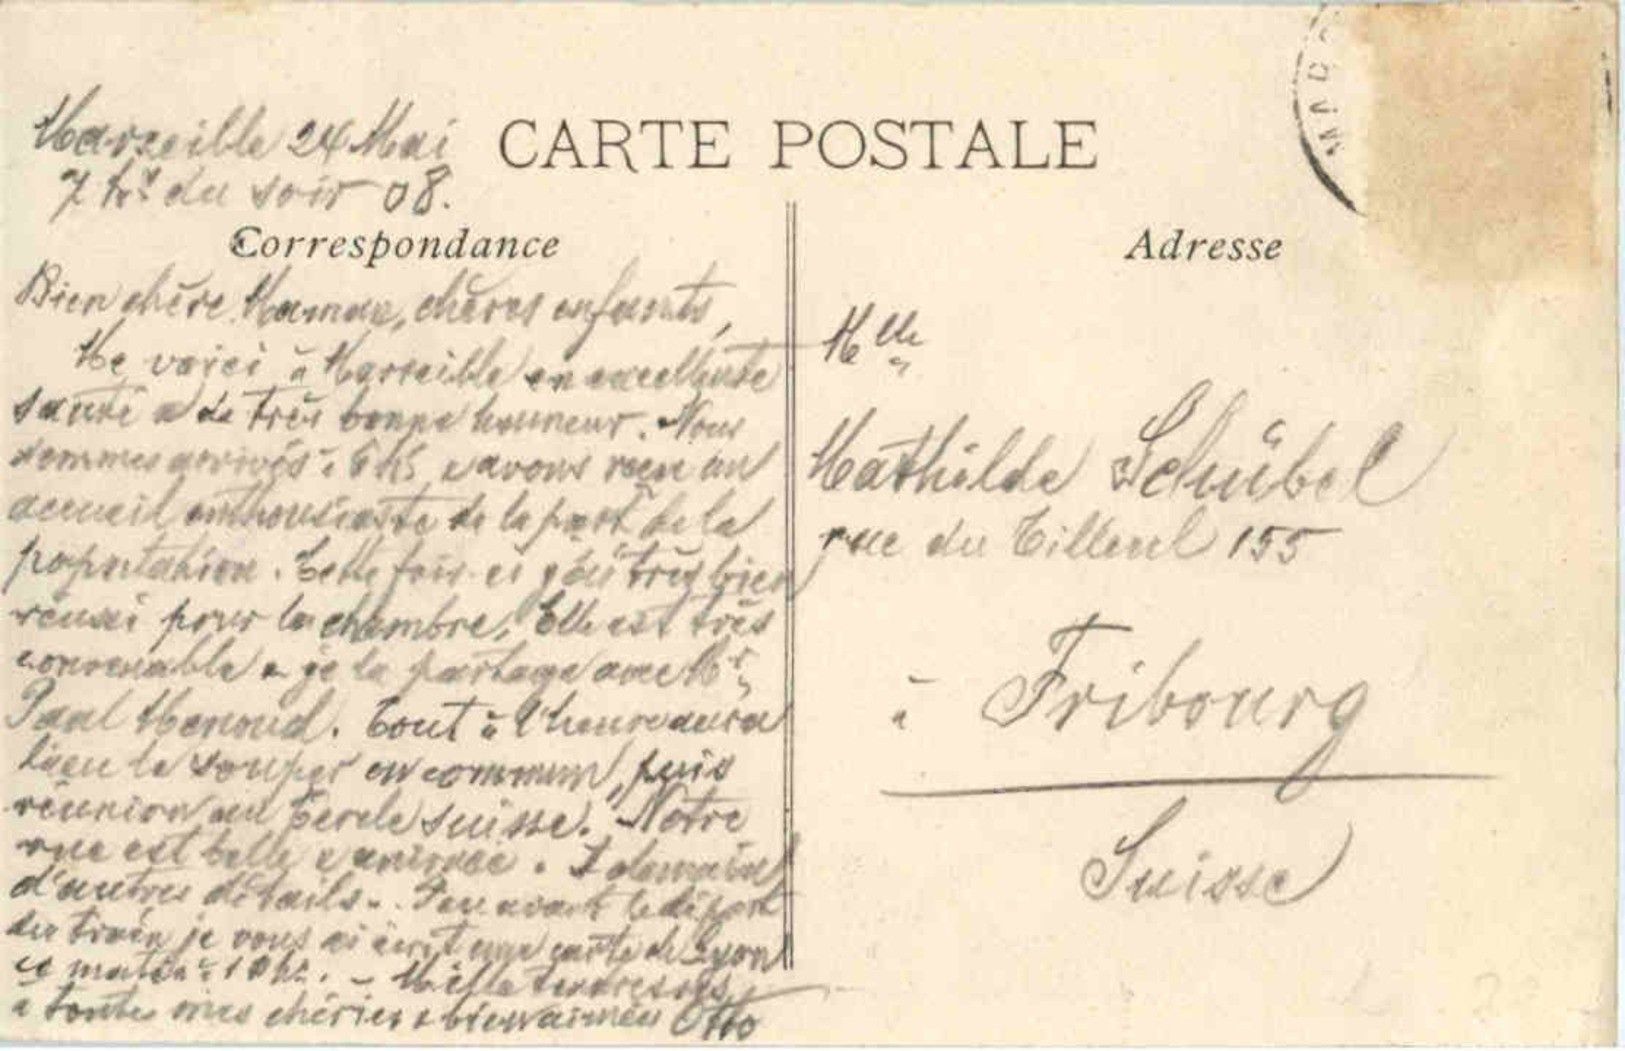 Marseille 24 Mai
7 hrs du soir 08.
CARTE POSTALE
Correspondance
Bien chère Maman, chères enfants,
Me voici à Marseille en excellente
santé & de très bonne humeur. Nous
sommes arrivés à 6 hs & avons reçu un
accueil enthousiaste de la part de la
population. Cette fois-ci j'ai très bien
réussi pour la chambre. Elle est très
convenable & je la partage avec Mr
Paul Menoud. Tout à l'heure aura
lieu le souper en commun, puis
réunion au Cercle suisse. Notre
rue est belle & animée. A demain
d'autres détails. Peu avant le départ
du train je vous ai écrit une carte de Lyon
ce matin à 10 hs. – Mille tendresses
à toutes mes chéries & bien aimées Otto
Adresse
Mlle
Mathilde Schübel
rue du Tilleul 155
à Fribourg
Suisse